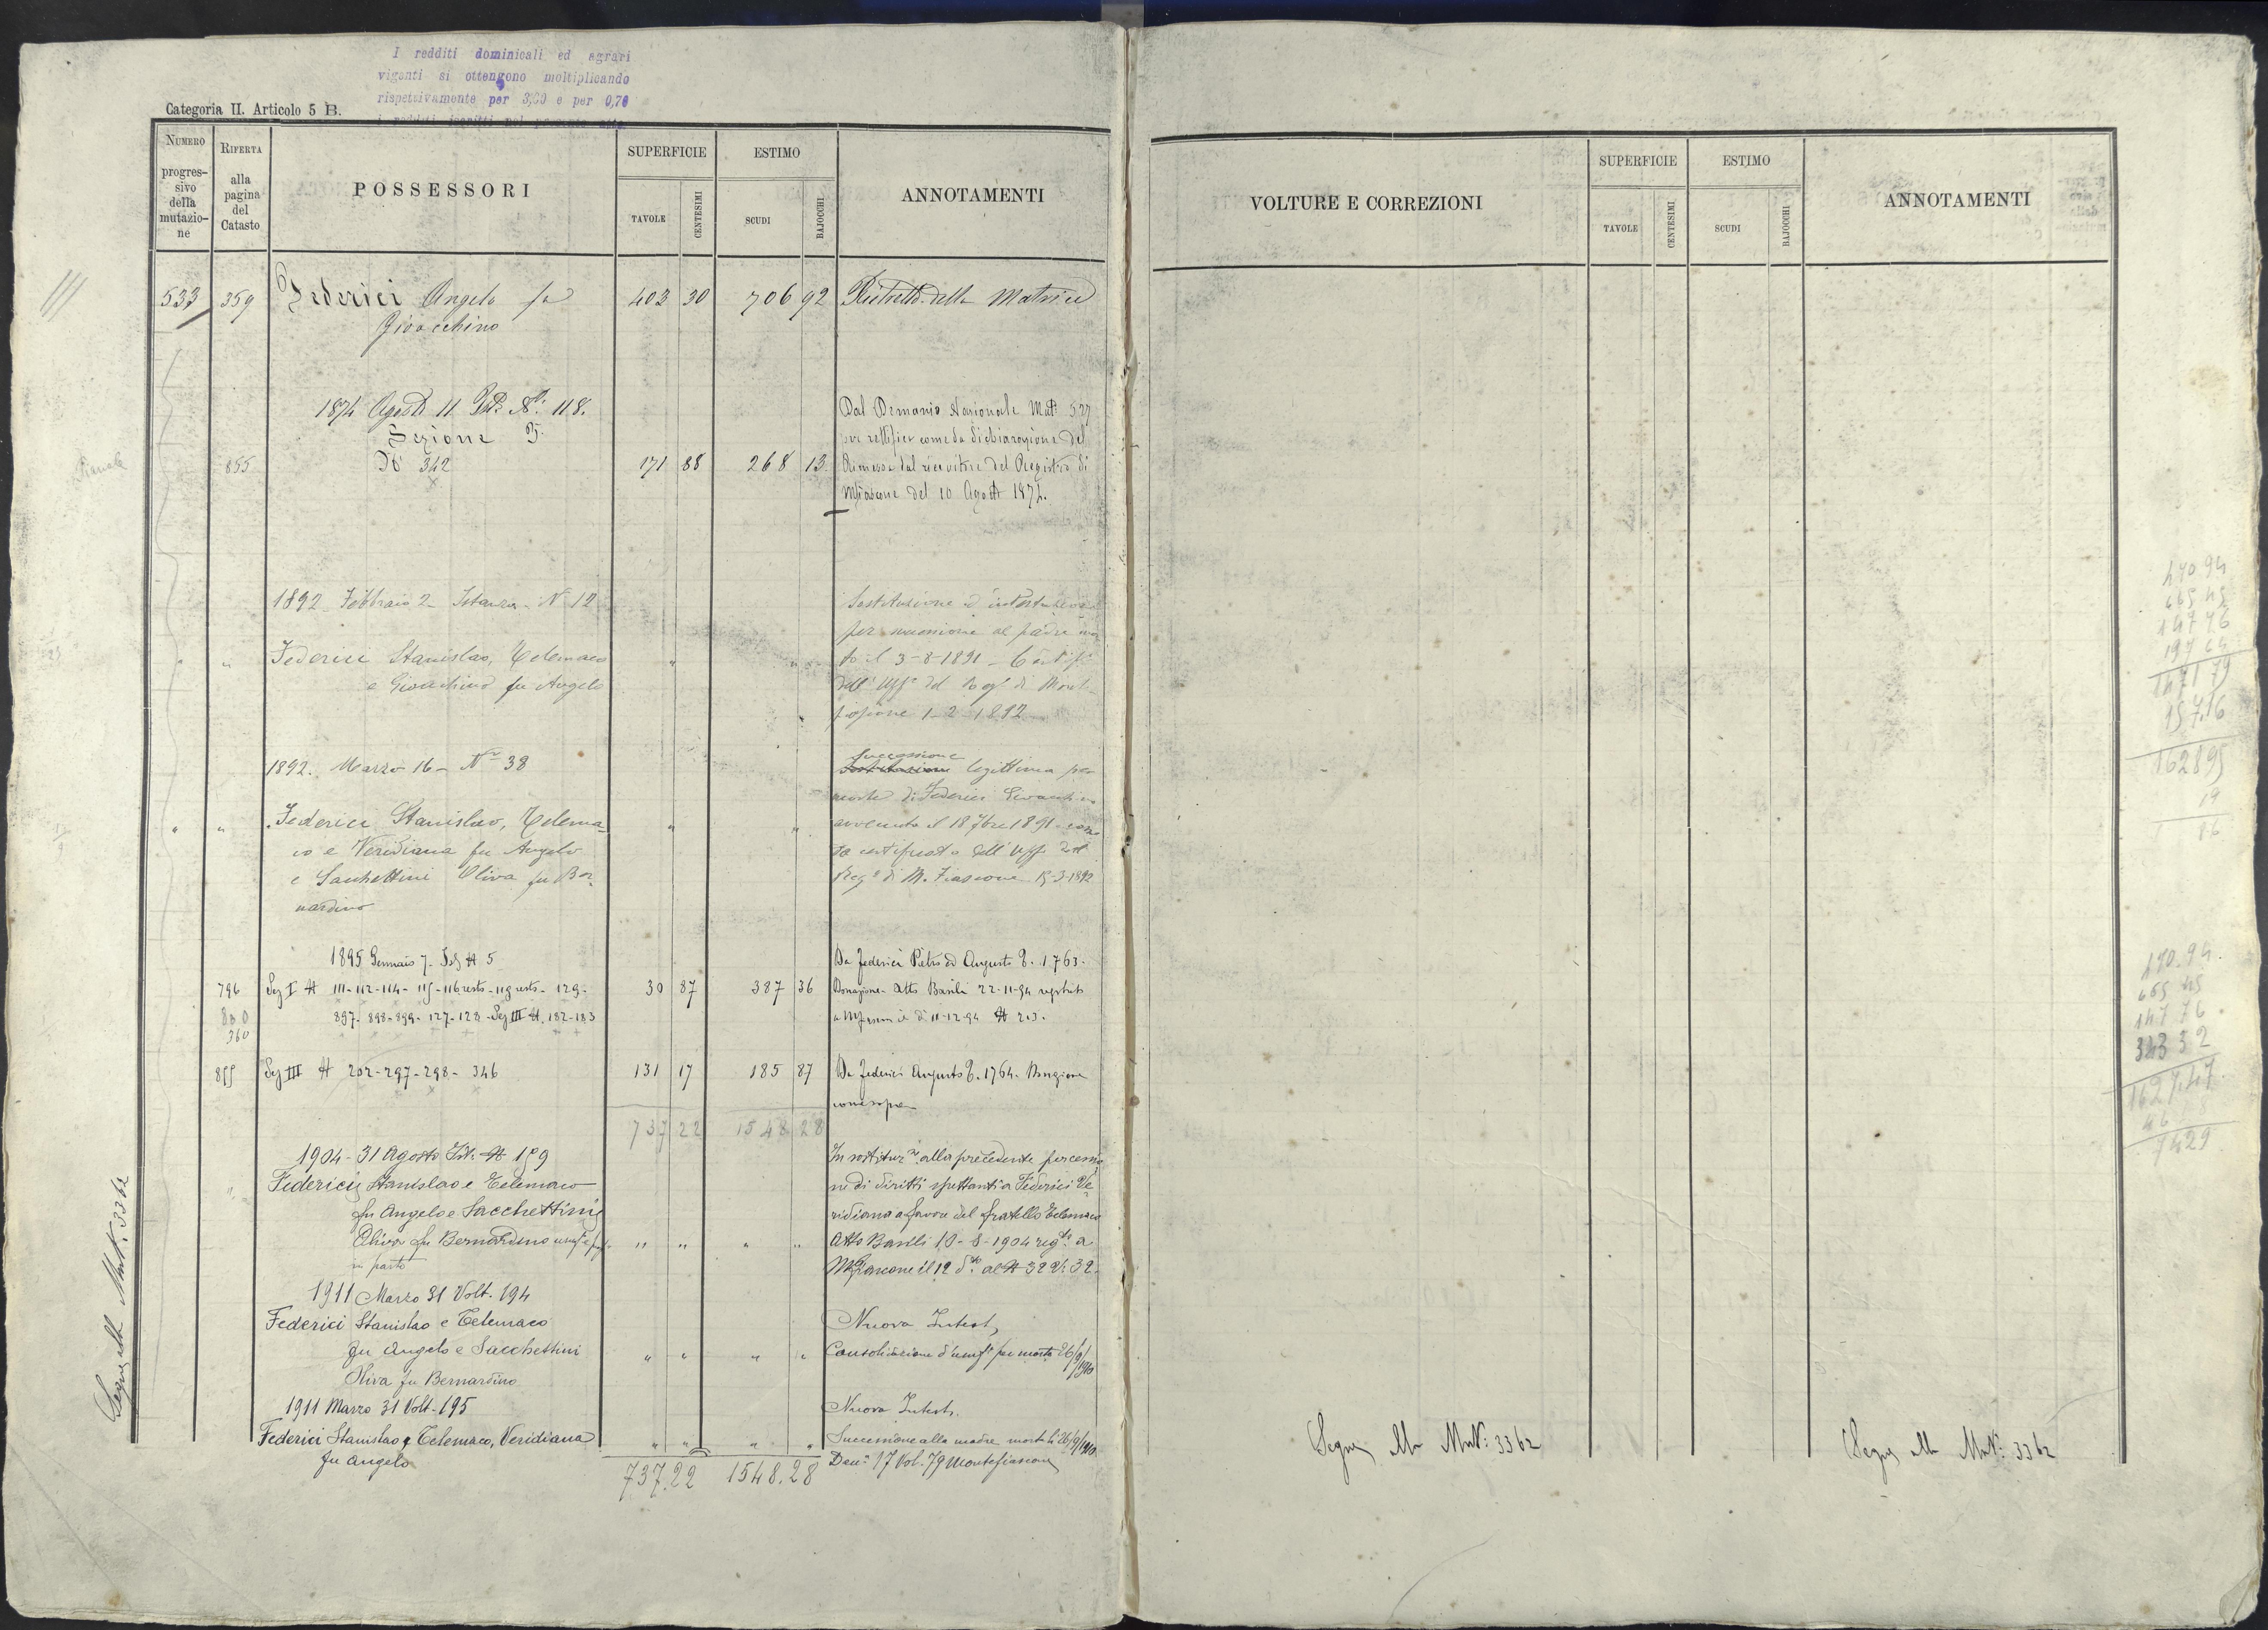 I redditi dominicali ed agrari
vigenti si ottengono moltiplicando
rispettivamente per 3,00 e per 0,70
Categoria II. Articolo 5 B.
NUMERO progressivo della mutazione
RIFERTA alla pagina del Catasto
POSSESSORI
SUPERFICIE
TAVOLE
CENTESIMI
ESTIMO
SCUDI
BAJOCCHI
ANNOTAMENTI
533 359 Federici Angelo fu 403 30 706 92 della Matrice
Gioacchino
1874 Agosto 11 N° 118. Dal Demanio Nazionale Mat: 527
Sezione per rettifica come da dichiarazione del
855 N° 342 171 88 268 13 Rimessa dal ricevitore del Registro di
Mfiascone del 10 Agosto 1874.
1892 Febbraio 2 Istanza N 12
per successione al padre
" Federici Stanislao, Telemaco " " to il 3-8-1891
e Gioacchino fu Angelo dell' Uff° del Reg° di Monte-
fiascone 1-2-1892
1892. Marzo 16 - N° 38 Successione
legittima per
morte di Federici
" " Federici Stanislao, Telema- " " avvenuta il 18 7bre 1891
co e Veridiana fu Angelo certificato dell' Uff. del
e Sacchettini Oliva fu Ber- Reg° di M. Fiascone 15-3-1892
nardino
1895 Gennaio 7 5 Da Federici Pietro ed Augusto 1763.
796 Sez I N 111-112-114-115-116 resto-119 resto-129- 30 87 387 36 Donazione - atto Basili 22-11-94
800 897-898-899-127-128-Sez III N. 182-183 11-12-94
360
855 Sez III N 202-297-298-346 131 17 185 87 Da Federici Augusto 1764. Donazione
come sopra
737 22 1548 28
1904-31 Agosto Ist. N 159 In sostituz.ne alla precedente per cessio-
" Federici Stanislao e Telemaco ne di diritti spettanti a Federici Ve-
fu Angelo e Sacchettini ridiana a favore del fratello Telemaco
Oliva fu Bernardino " " " " Atto Basili 10-8-1904 reg.to a
in parte Mfiascone il 12 d.to al N 32
1911 Marzo 31 Volt. 194
Federici Stanislao e Telemaco Nuova Intest.
fu Angelo e Sacchettini " " " " Consolidazione d'usuf° per morte 26/9/1910
Oliva fu Bernardino
1911 Marzo 31 Volt. 195 Nuova Intest.
Federici Stanislao, Telemaco, Veridiana " " " " Successione alla madre morta li 26/9/1910
fu Angelo 737.22 1548.28 Den. 17 Vol. 79 Montefiascone
Segue alla Mut: 3362
VOLTURE E CORREZIONI
SUPERFICIE
TAVOLE
CENTESIMI
ESTIMO
SCUDI
BAJOCCHI
ANNOTAMENTI
470 94
465 45
147 76
197 64
157,16
162895
19
86
470.94
465 45
147 76
343 32
1627,47
1429
Segue alla Mut: 3362
Segue alla Mut: 3362